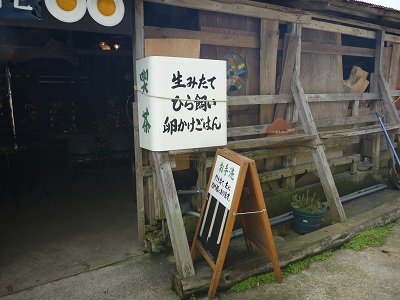 喫茶
生みたて
ひら飼い
卵かけごはん
お手洗